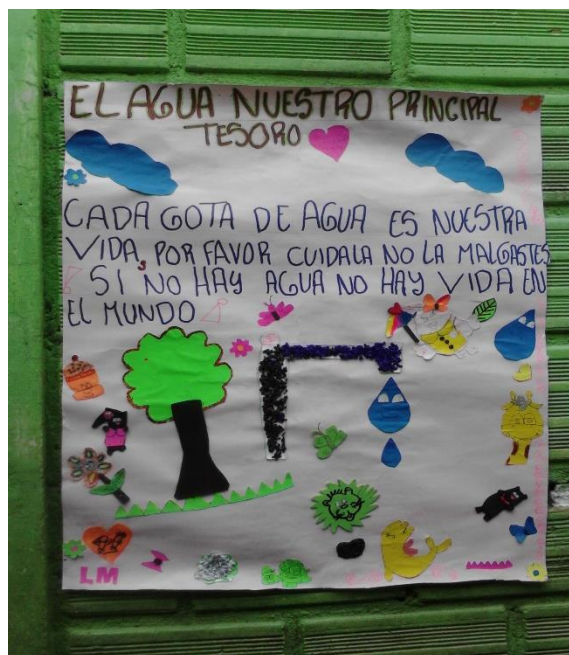 EL AGUA NUESTRO PRINCIPAL
TESORO
CADA GOTA DE AGUA ES NUESTRA
VIDA, POR FAVOR CUIDALA NO LA MALGASTES
SI NO HAY AGUA NO HAY VIDA EN
EL MUNDO
LM